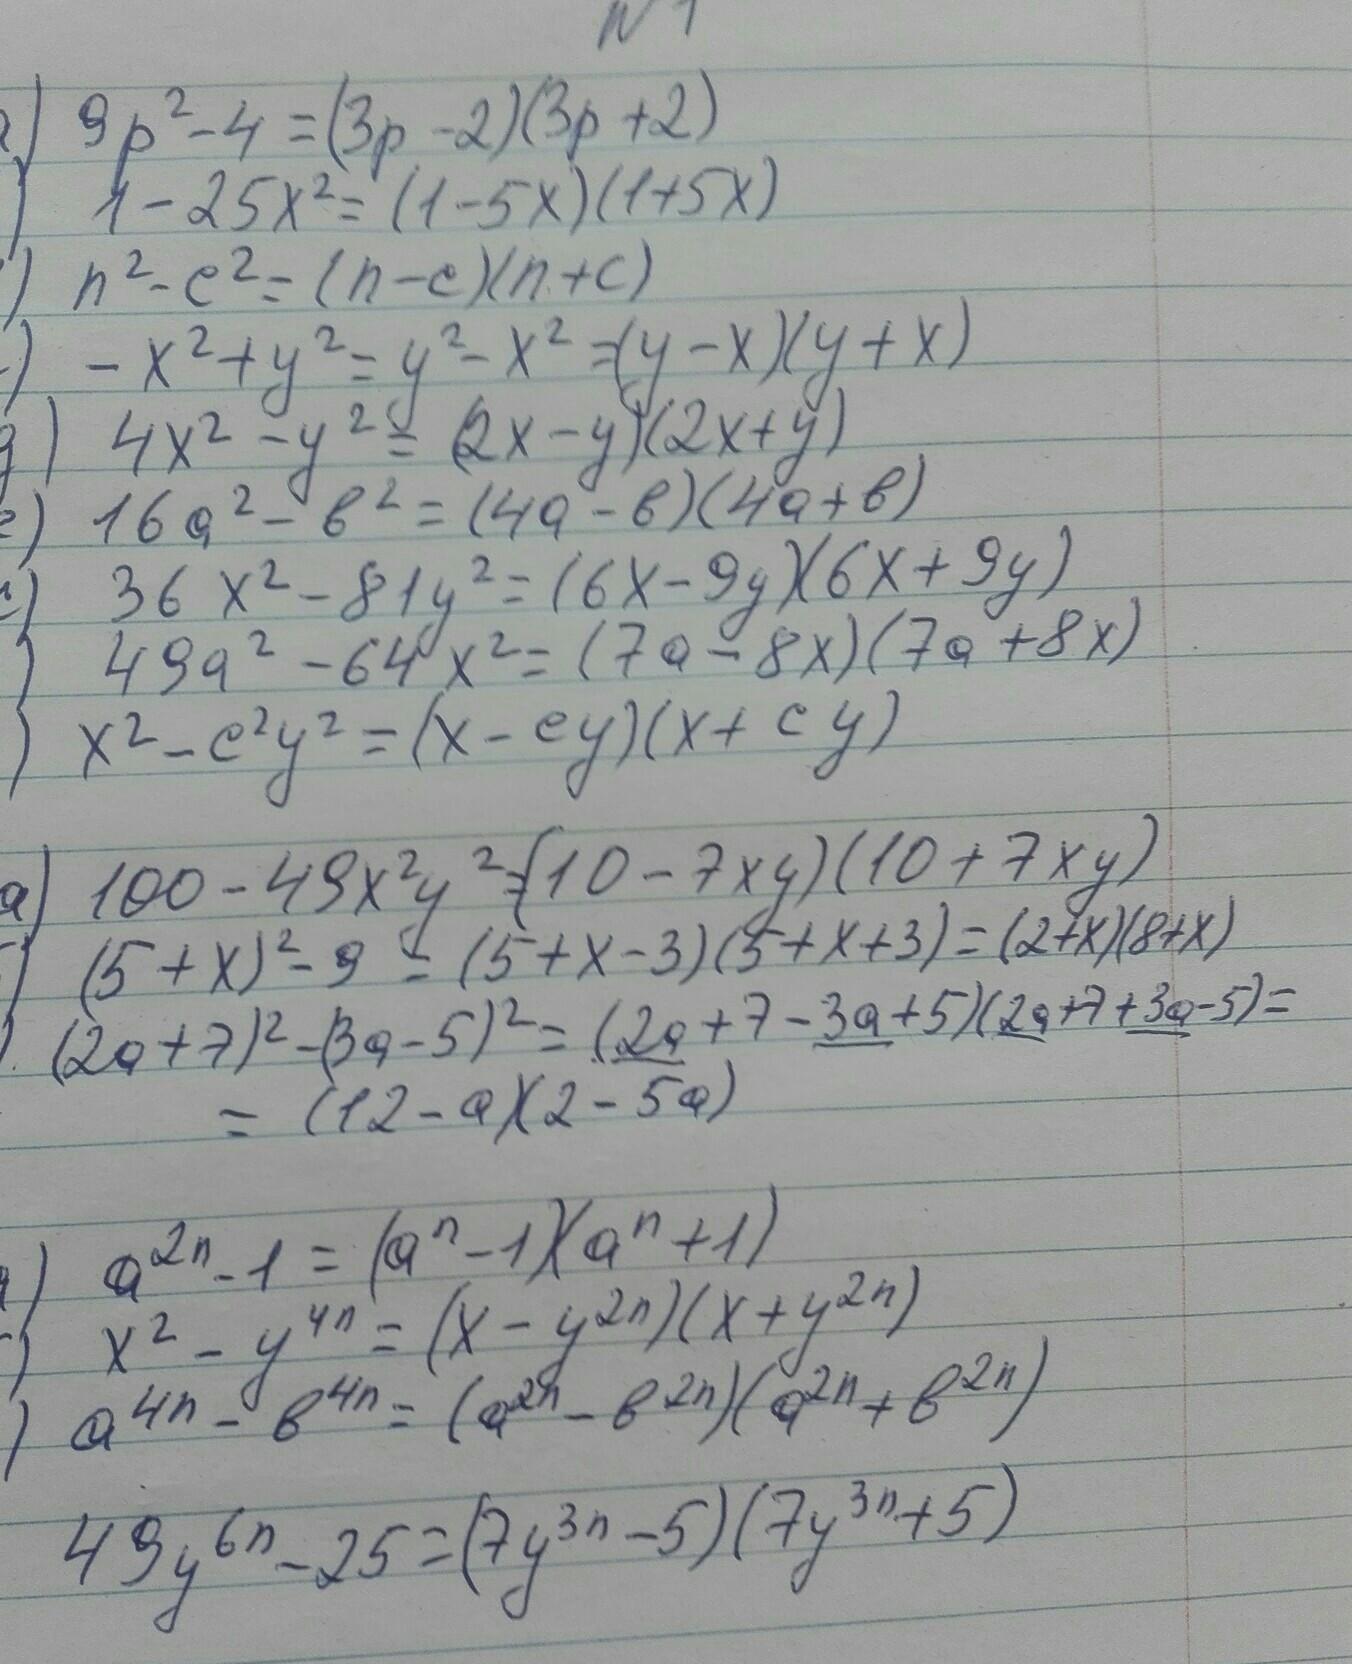 N 1
а) 9p² - 4 = (3p - 2)(3p + 2)
) 1 - 25x² = (1 - 5x)(1 + 5x)
) n² - c² = (n - c)(n + c)
) - x² + y² = y² - x² = (y - x)(y + x)
g) 4x² - y² = (2x - y)(2x + y)
е) 16a² - b² = (4a - b)(4a + b)
) 36x² - 81y² = (6x - 9y)(6x + 9y)
) 49a² - 64x² = (7a - 8x)(7a + 8x)
) x² - c²y² = (x - cy)(x + cy)
а) 100 - 49x²y² = (10 - 7xy)(10 + 7xy)
) (5 + x)² - 9 = (5 + x - 3)(5 + x + 3) = (2 + x)(8 + x)
) (2a + 7)² - (3a - 5)² = (2a + 7 - 3a + 5)(2a + 7 + 3a - 5) =
= (12 - a)(2 - 5a)
) a²ⁿ - 1 = (aⁿ - 1)(aⁿ + 1)
) x² - y⁴ⁿ = (x - y²ⁿ)(x + y²ⁿ)
) a⁴ⁿ - b⁴ⁿ = (a²ⁿ - b²ⁿ)(a²ⁿ + b²ⁿ)
49y⁶ⁿ - 25 = (7y³ⁿ - 5)(7y³ⁿ + 5)